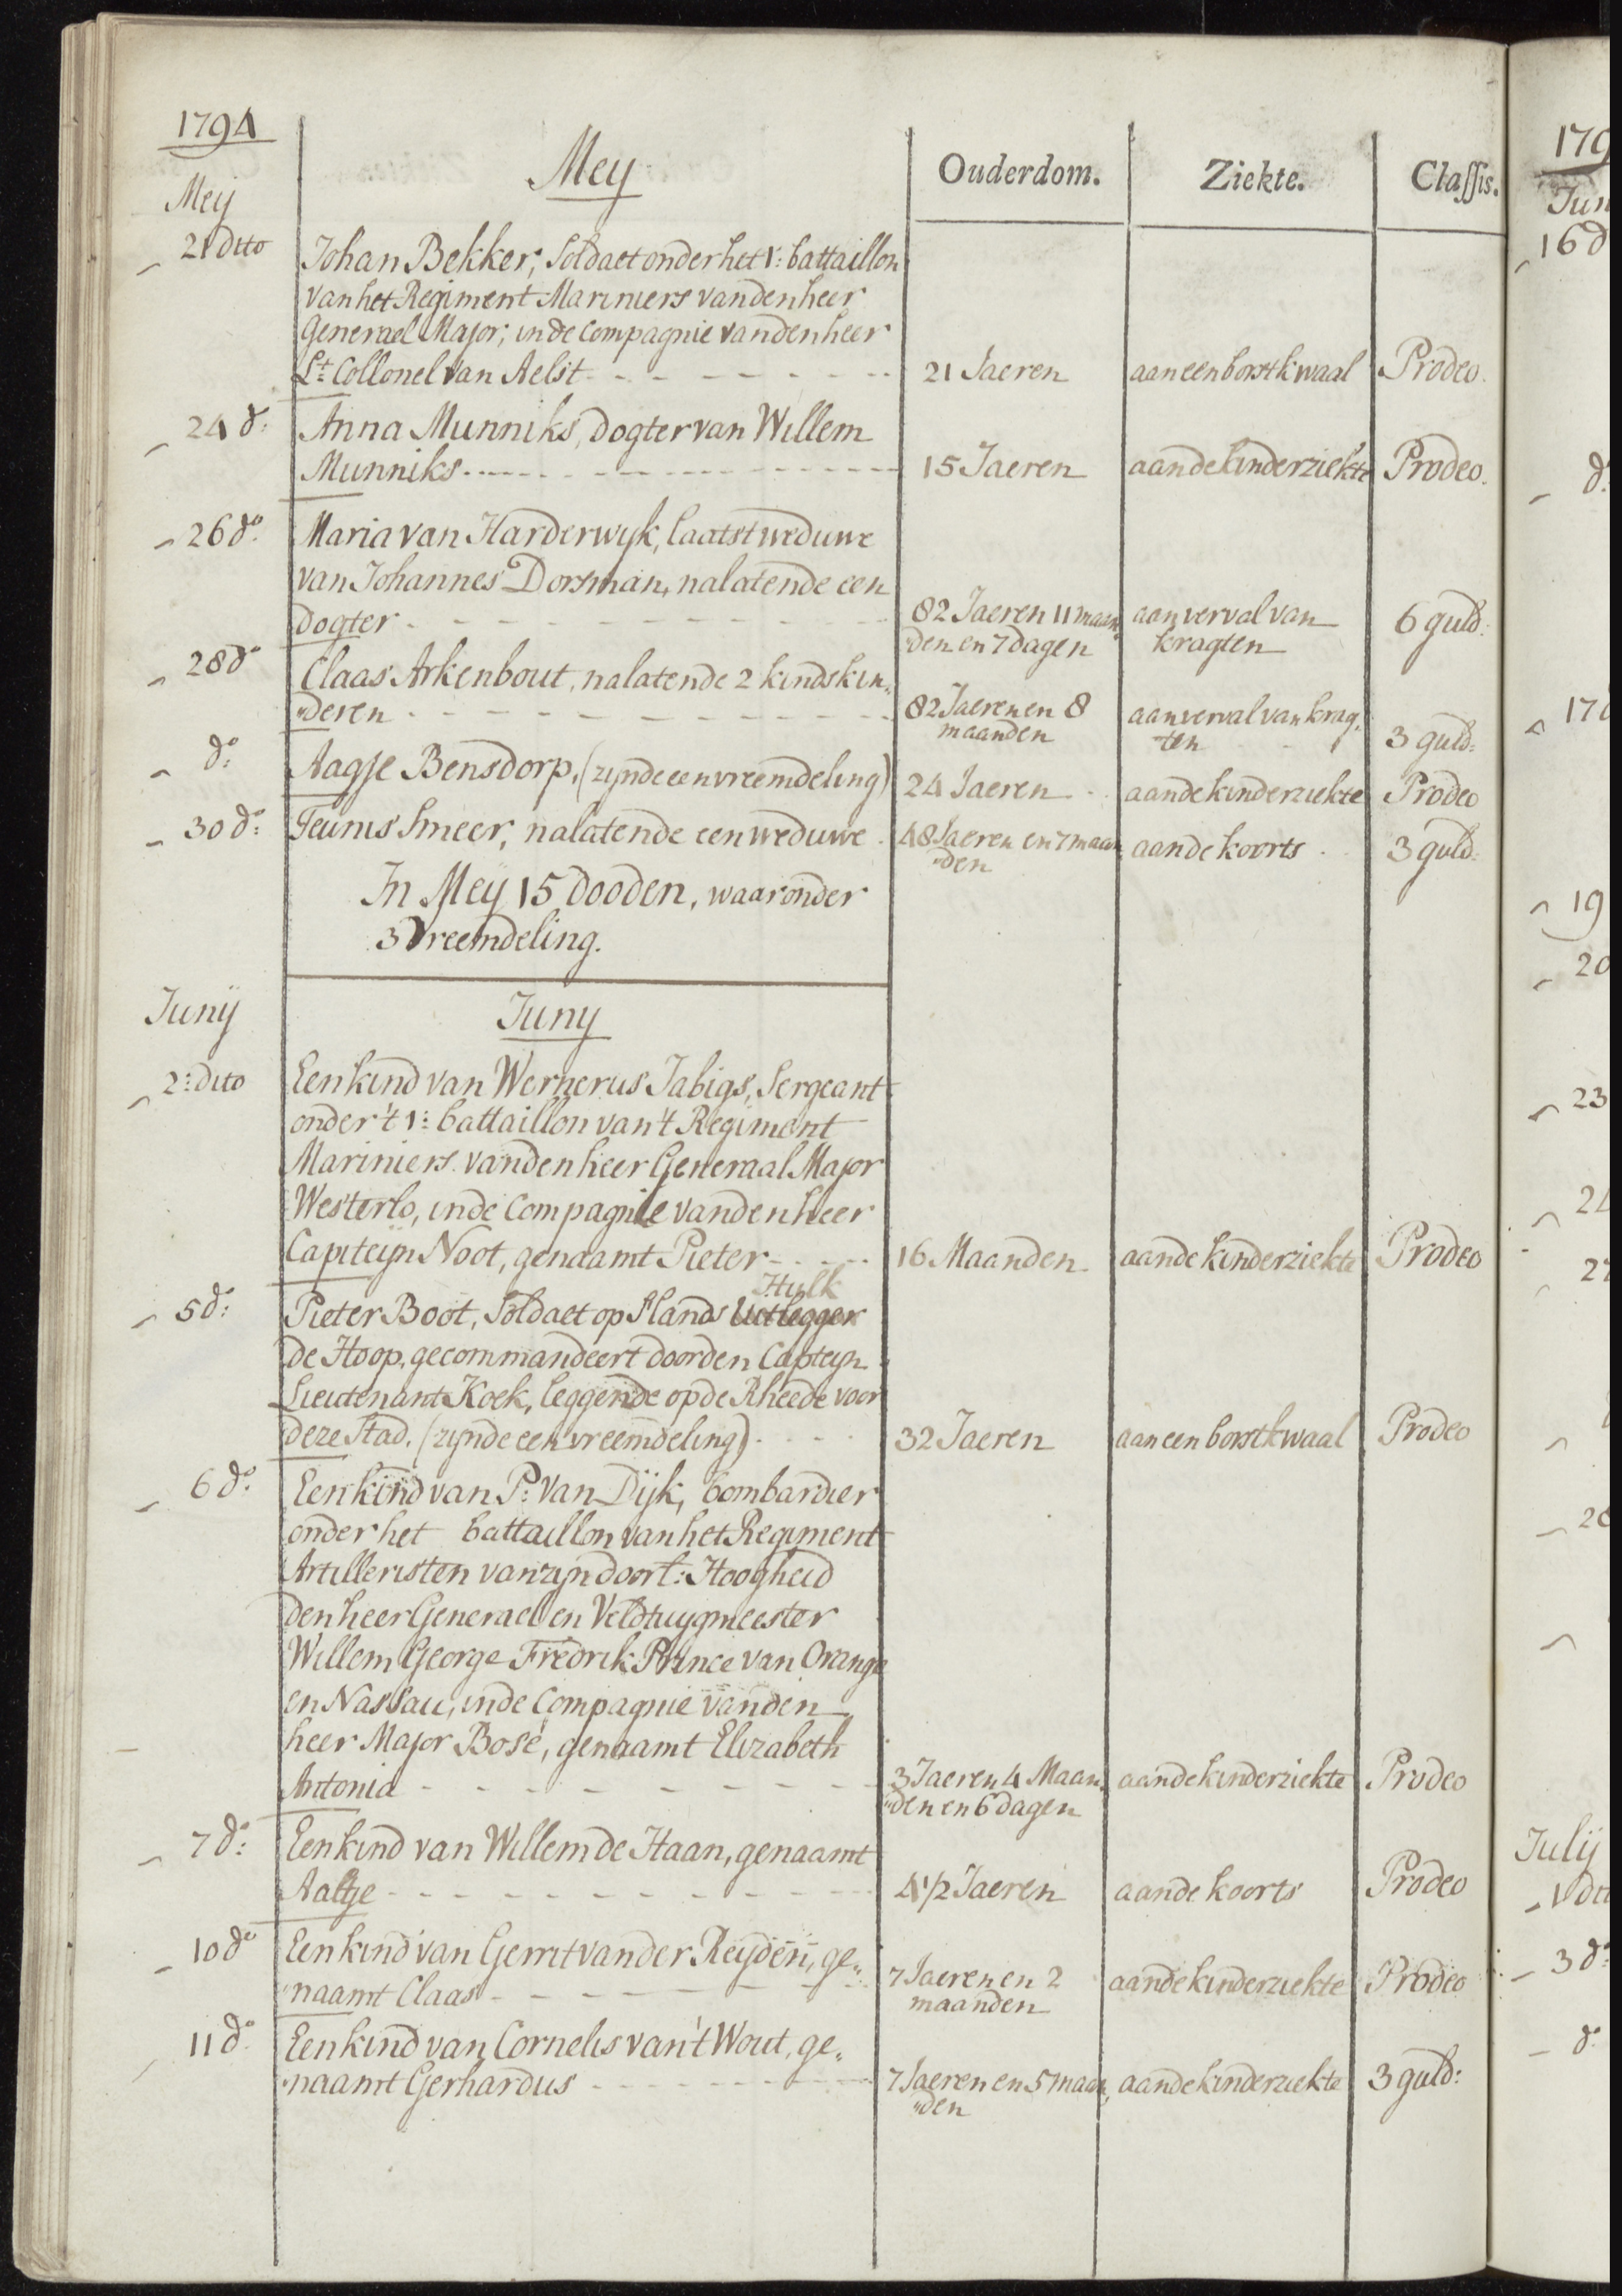 1794
Mey
Ouderdom.
Ziekte.
Classis.
Meij
21 dito
Johan Bekker, Soldaet onder het 1: battaillon
van het Regiment Mariniers van den heer
Generael Major, in de Compagnie van den heer
Lt. Collonel van Aelst
21 Jaeren
aan een borstkwaal
Prodeo.
24 do:
Anna Munniks, dogter van Willem
Munniks
15 Jaeren
aan de kinderziekte
Prodeo.
26 do:
Maria van Harderwyk, laatst weduwe
van Johannes Dorsman, nalatende een
dogter
82 Jaeren 11 maan„
„den en 7 dagen
aan verval van
kragten
6 guld:
28 do
Claas Arkenbout, nalatende 2 kindskin„
„deren
82 Jaeren en 8
maanden
aan verval van krag„
ten
3 guld:
do:
Aagje Bensdorp, (zijnde een vreemdeling)
24 Jaeren
aan de kinderziekte
Prodeo
30 do:
Teunis Smeer, nalatende een weduwe
48 Jaeren en 7 maan
„den
aan de koorts
3 guld:
In Meij 15 dooden, waaronder
3 Vreemdeling.
Junij
Juny
2: dito
Een kind van Wernerus Jabigs, Sergeant
onder 't 1: battaillon van 't Regiment
Mariniers van den heer Generaal Major
Westerlo, in de Compagnie van den heer
Capiteijn Noot, genaamt Pieter
16 Maanden
aan de kinderziekte
Prodeo
Hulk
5 do:
Pieter Boot, Soldaet op 's Lands Uitlegger
de Hoop, gecommandeert door den Capteijn
Lieutenant Koek, leggende op de Rheede voor
deze Stad. (zijnde een vreemdeling)
32 Jaeren
aan een borstkwaal
Prodeo
6 do:
Een kind van P: van Dijk, bombardier
onder het battaillon van het Regiment
Artilleristen van zijn doorl: Hoogheid
den heer Generael en Veldtuygmeester
Willem George Fredrik Prince van Orange
en Nassau, in de Compagnie van den
heer Major Bosé, genaamt Elizabeth
Antonia
3 Jaeren 4 Maan„
„den en 6 dagen
aan de kinderziekte
Prodeo
7 do:
Een kind van Willem de Haan, genaamt
Aaltje
4 1/2 Jaeren
aan de koorts
Prodeo
10 do
Een kind van Gerrit van der Reijden, ge„
„naamt Claas
7 Jaeren en 2
maanden
aan de kinderziekte
Prodeo
11 do
Een kind van Cornelis van 't Wout, ge„
„naamt Gerhardus
7 Jaeren en 5 maan„
„den
aan de kinderziekte
3 guld:
179
Jun
16 d
do:
17 d
19
20
23
24
27
28
Julij
1 dit
3 do:
do